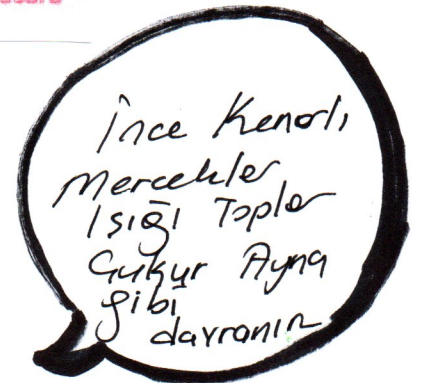 İnce Kenarlı
Mercekler
Işığı Toplar
Çukur Ayna
gibi
davranır